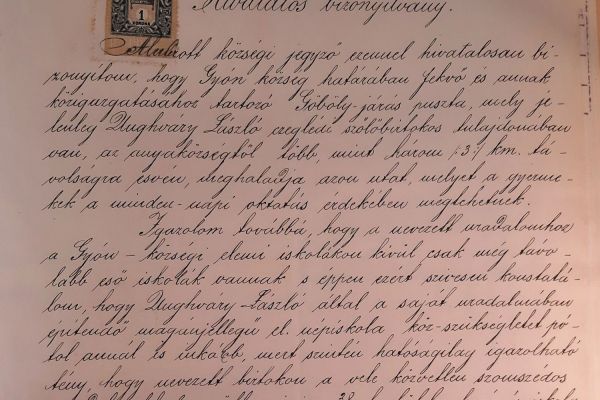 Hivatalos bizonyítvány.
1
KORONA
Alulirott községi jegyző ezennel hivatalosan bi-
zonyítom, hogy Gyón község határában fekvő és annak
közigazgatásához tartozó Göböly-járás puszta, mely je-
lenleg Unghváry László czeglédi szőlőbirtokos tulajdonában
van, az anyaközségtől több, mint három /:3:/ km. tá-
volságra esvén, meghaladja azon utat, melyet a gyerme-
kek a minden-napi oktatás érdekében megtehetnek.
Igazolom továbbá, hogy a nevezett uradalomhoz
a Gyón-községi elemi iskolákon kívül csak még távo-
labb eső iskolák vannak s éppen ezért szivesen konstatá-
lom, hogy Unghváry László által a saját uradalmában
építendő magánjellegű el. népiskola köz-szükségletet pó-
tol annál is inkább, mert szintén hatóságilag igazolható
tény, hogy nevezett birtokon a vele közvetlen szomszédos